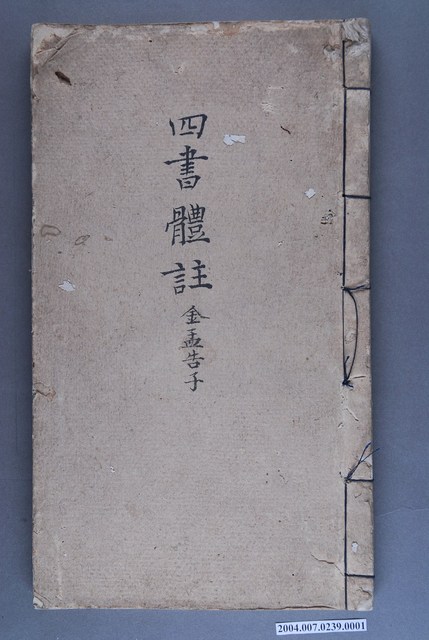 四書體註
金孟告子
2004.007.0239.0001